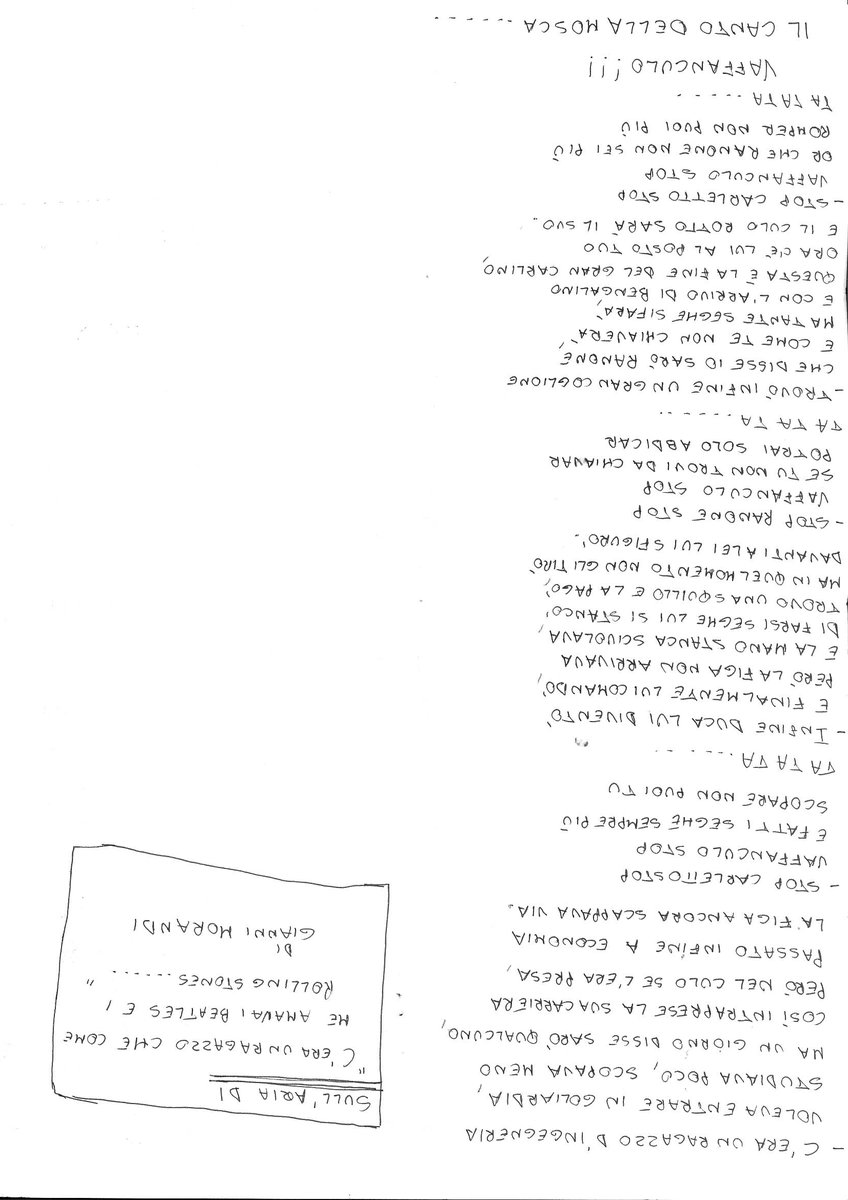 - C'ERA UN RAGAZZO D'INGEGNERIA
VOLEVA ENTRARE IN GOLIARDIA,
STUDIAVA POCO, SCOPAVA MENO
MA UN GIORNO DISSE SARÒ QUALCUNO,
COSÌ INTRAPRESE LA SUA CARRIERA
PERÒ NEL CULO SE L'ERA PRESA,
PASSATO INFINE A ECONOMIA
LA FIGA ANCORA SCAPPAVA VIA.
- STOP CARLETTO STOP
VAFFANCULO STOP
E FATTI SEGHE SEMPRE PIÙ
SCOPARE NON PUOI TU
TA TA TA ......
- INFINE DUCA LUI DIVENTÒ
E FINALMENTE LUI COMANDÒ,
PERÒ LA FIGA NON ARRIVAVA
E LA MANO STANCA SCIVOLAVA,
DI FARSI SEGHE LUI SI STANCÒ,
TROVO UNA SQUILLO E LA PAGÒ,
MA IN QUEL MOMENTO NON GLI TIRÒ
DAVANTI A LEI LUI SFIGURÒ.
- STOP RANONE STOP
VAFFANCULO STOP
SE TU NON TROVI DA CHIAVAR
POTRAI SOLO ABDICAR
TA TA TA ......
- TROVÒ INFINE UN GRAN COGLIONE
CHE DISSE IO SARÒ RANONE
E COME TE NON CHIAVERÀ,
MA TANTE SEGHE SI FARÀ,
E CON L'ARRIVO DI BENGALINO
QUESTA È LA FINE DEL GRAN CARLINO,
ORA C'È LUI AL POSTO TUO
E IL CULO ROTTO SARÀ IL SUO.
- STOP CARLETTO STOP
VAFFANCULO STOP
OR CHE RANONE NON SEI PIÙ
ROMPER NON PUOI PIÙ
TA TA TA .....
VAFFANCULO!!!
IL CANTO DELLA MOSCA ......
SULL'ARIA DI
"C'ERA UN RAGAZZO CHE COME
ME AMAVA I BEATLES E I
ROLLING STONES ......"
DI
GIANNI MORANDI